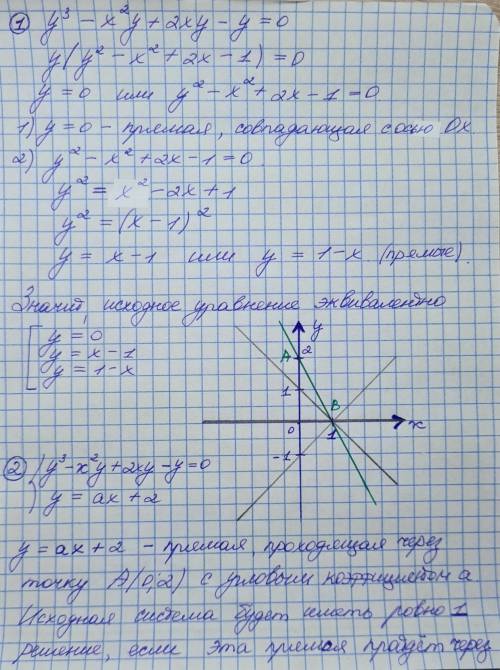 ① y³ - x²y + 2xy - y = 0
y(y² - x² + 2x - 1) = 0
y = 0 или y² - x² + 2x - 1 = 0
1) y = 0 - прямая, совпадающая с осью Ox
2) y² - x² + 2x - 1 = 0
y² = x² - 2x + 1
y² = (x - 1)²
y = x - 1 или y = 1 - x (прямые).
Значит, исходное уравнение эквивалентно
y = 0
y = x - 1
y = 1 - x
y
A 2
1
B
0 1 x
-1
② { y³ - x²y + 2xy - y = 0
y = ax + 2
y = ax + 2 - прямая, проходящая через
точку A(0,2) с угловым коэффициентом a
Исходная система будет иметь ровно 1
решение, если эта прямая пройдёт через